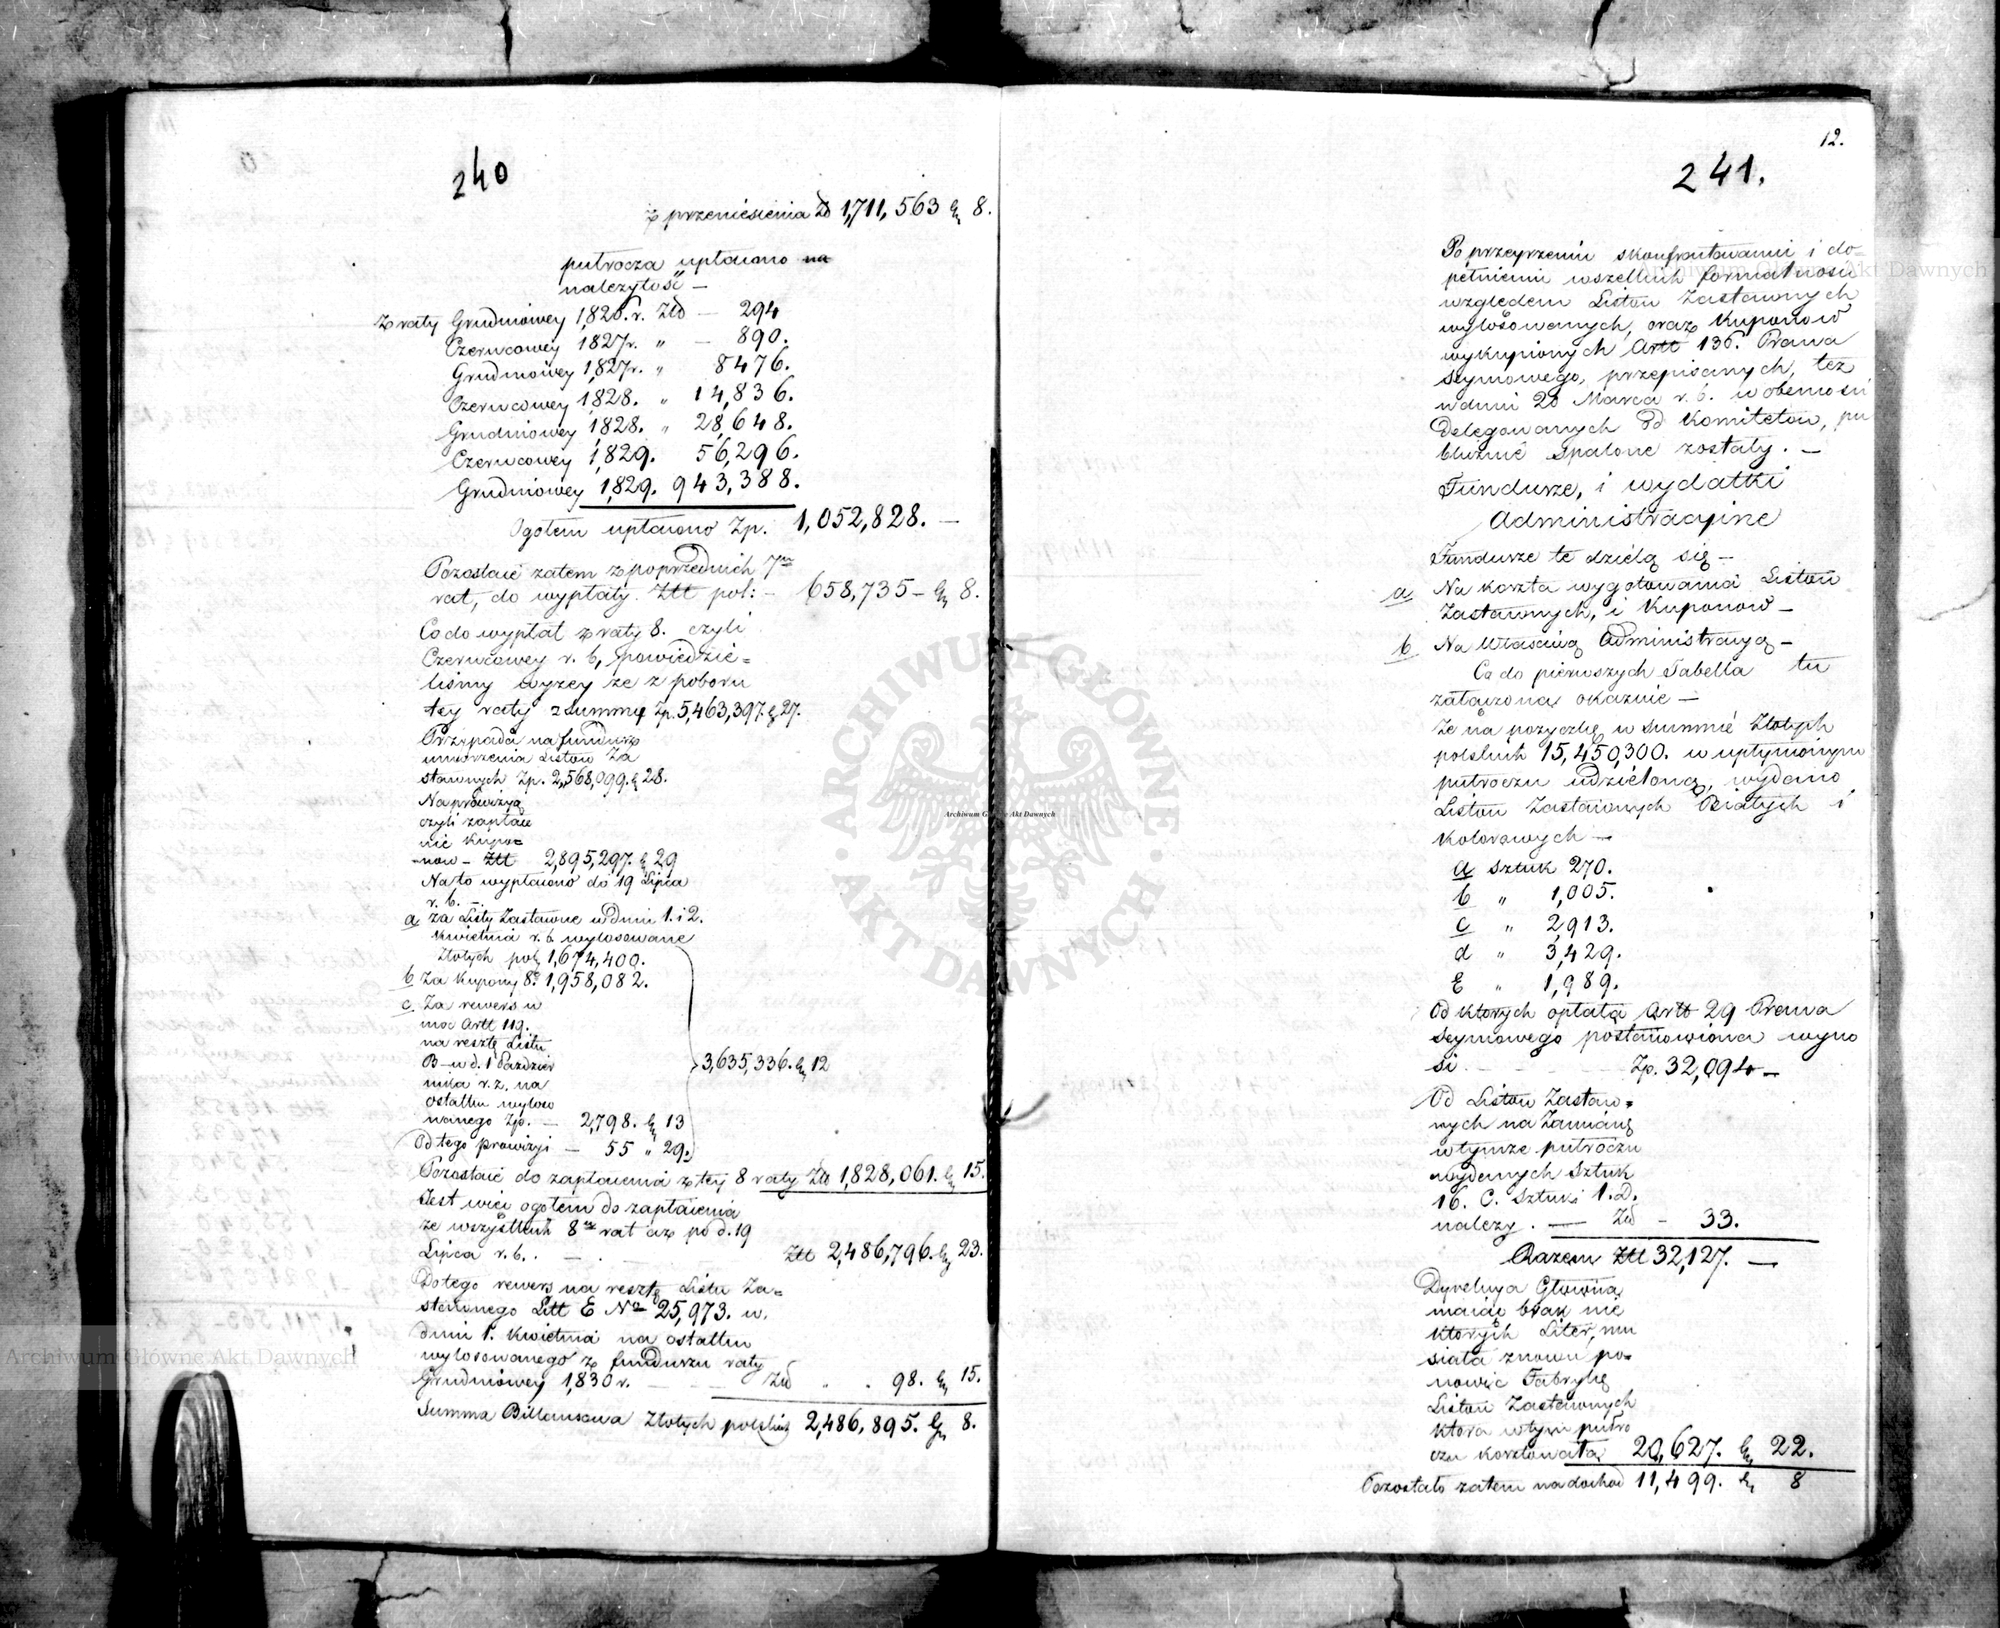 240
z przeniesienia Zł 1,711,563 gr 8.
pułrocza upłaiono na
należytość —
z raty Grudniowey 1,826. r. Złł — 294
Czerwcowey 1827r. " — 890.
Grudniowey 1,827r. " 8476.
Czerwcowey 1,828. " 14,836.
Grudniowey 1,828. " 28,648.
Czerwcowey 1,829. 56,296.
Grudniowey 1,829. 943,388.
Ogołem upłaiono Zp. 1,052,828. —
Pozostaie zatem z poprzednich 7miu
rat, do wypłaty. Złł pol: — 658,735 — gr 8.
Co do wypłat z raty 8. czyli
Czerwcowey r. b, powiedzie=
liśmy wyzey że z poboru
tey raty z Summy Zp. 5,463,397. g. 27.
Przypada na fundusz
umorzenia Listow Za
stawnych Zp. 2,568,099. g 28.
Na prowizyą
czyli zapłace
nie Kupo=
now — Złł 2,895,297. g 29
Na to wypłaiono do 19 Lipca
r. b. —
a za Listy Zastawne w dniu 1. i 2.
Kwietnia r. b. wylosowane
Złotych pol. 1,674,400.
b Za Kupony 8. 1,958,082.
c. Za rewers w
moc Artt 119.
na resztę Listu
B — w d. 1 Paździer
nika r. z. na
ostatku wyloso
wanego Zp. — 2,798. gr 13
Od tego prowizyi — 55 " 29.
3,635,336. gr 12
Pozostaie do zapłacenia z tey 8 raty Złł 1,828,061. gr 15.
Jest więc ogołem do zapłacenia
ze wszystkich 8miu rat az po d. 19
Lipca r. b. . — . Złł 2,486,796. gr 23.
Do tego rewers na resztę Listu Za=
stawnego Litt E No 25,973. w
dniu 1. Kwietnia na ostatku
wylosowanego z funduszu raty
Grudniowey 1,830 r. — — Złł . . 98. gr 15.
Summa Billansowa Złotych polskich 2,486,895. gr 8.
12.
241.
Po przeyrzeniu skonfrontowaniu i do=
pełnieniu wszelkich formalnosci
względem Listow Zastawnych
wylosowanych, oraz Kuponow
wykupionych Artt 136. Prawa
Seymowego, przepisanych, tez
w dniu 20 Marca r. b. w obecnosci
Delegowanych od Komitetow, pu
blicznie spalone zostały. —
Fundusze, i wydatki
Administracyine
Fundusze te dzielą się —
a Na koszta wygotowania Listow
Zastawnych, i Kuponow —
b Na Właściwą Administracyą —
Co do pierwszych Tabella tu
załączona okazuie —
Że na pozyczkę w summie Złotych
polskich 15,450,300. w upłynionym
pułroczu udzieloną, wydano
Listow Zastawnych Białych i
Kolorowych —
a Sztuk 270.
b " 1,005.
c " 2,913.
d " 3,429.
E " 1,989.
Od ktorych opłata Artt 29 Prawa
Seymowego postanowiona wyno
si — — — Zp. 32,094 —
Od Listow Zastaw=
nych na Zamianę
w tymze pułroczu
wydanych Sztuk
16. C. Sztuki 1. D.
nalezy. — Złł — 33.
Razem Złł 32,127. —
Dyrekcya Głowna
maiąc brak nie
ktorych Liter, mu
siała znowu po=
nowić Fabrykę
Listow Zastawnych
ktora w tym pułro
czu kosztowała 20,627. gr 22.
Pozostało zatem na dochod 11,499. gr 8
Archiwum Główne Akt Dawnych
Archiwum Główne Akt Dawnych
Archiwum Główne Akt Dawnych
ARCHIWUM GŁÓWNE · AKT DAWNYCH ·